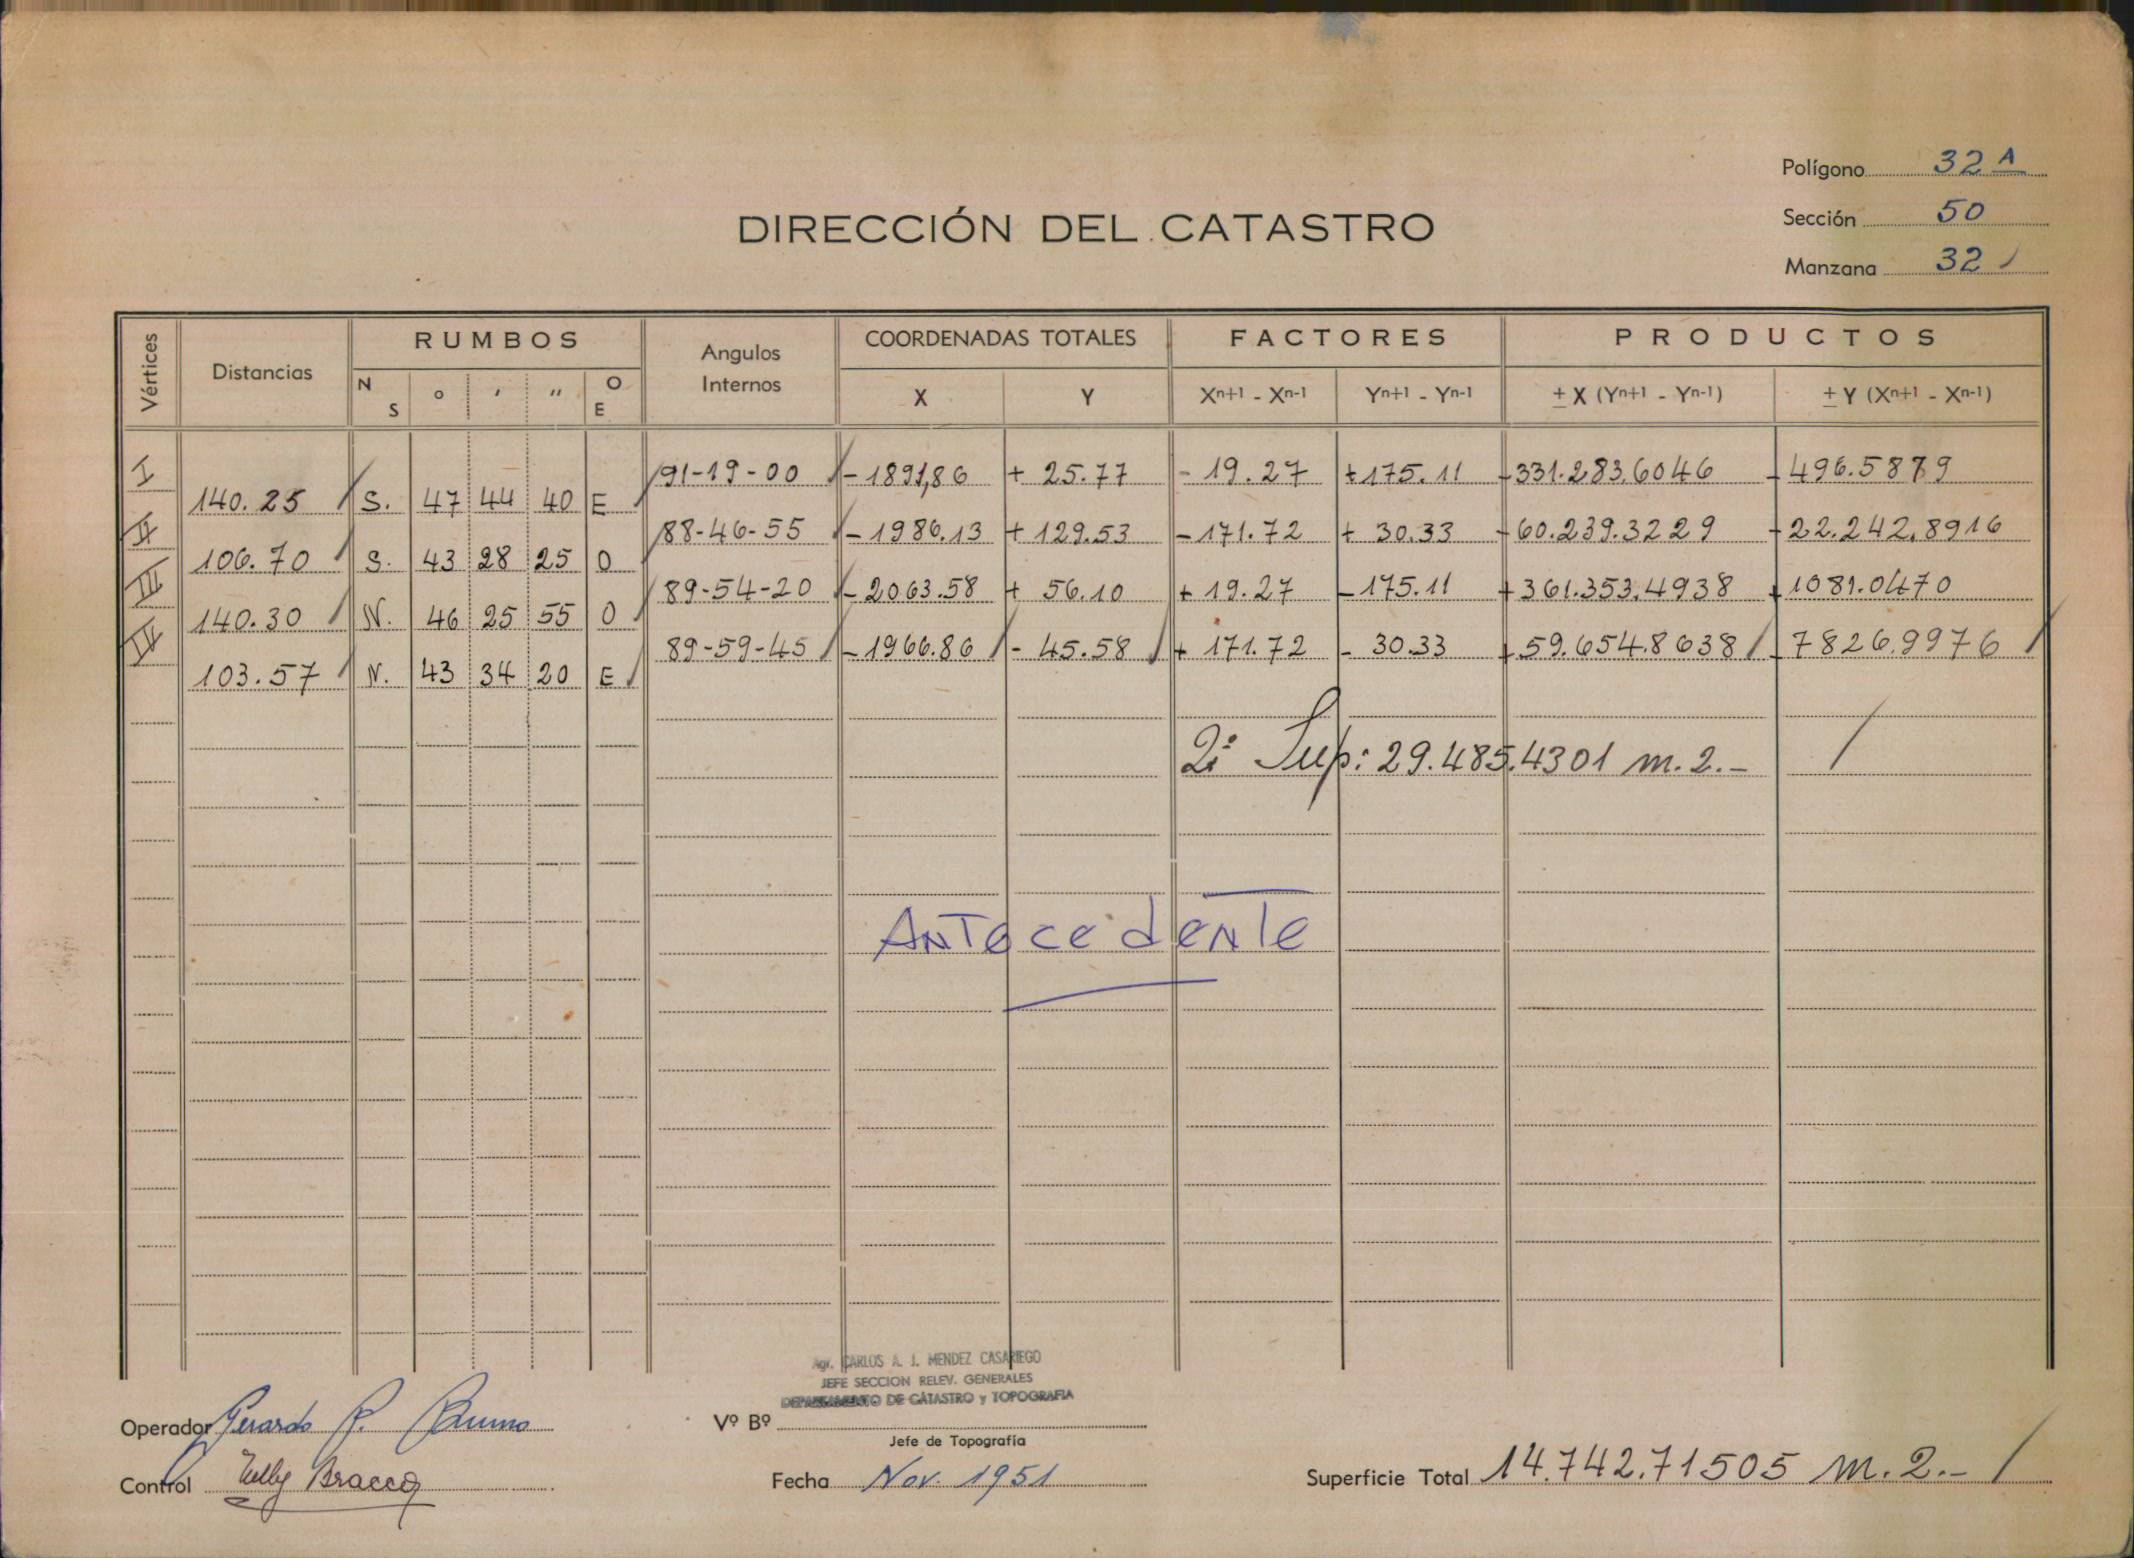 Polígono 32 A
Sección 50
Manzana 32
DIRECCIÓN DEL CATASTRO
Vértices Distancias RUMBOS Angulos Internos COORDENADAS TOTALES FACTORES PRODUCTOS
N S ° ' " O E X Y Xn+1 - Xn-1 Yn+1 - Yn-1 ± X (Yn+1 - Yn-1) ± Y (Xn+1 - Xn-1)
I 91-19-00 - 1891,86 + 25.77 - 19.27 + 175.11 - 331.283.6046 - 496.5879
140.25 S. 47 44 40 E
II 88-46-55 - 1986.13 + 129.53 - 171.72 + 30.33 - 60.239.3229 - 22.242.8916
106.70 S. 43 28 25 O
III 89-54-20 - 2063.58 + 56.10 + 19.27 - 175.11 + 361.353.4938 + 1081.0470
140.30 N. 46 25 55 O
IV 89-59-45 - 1966.86 - 45.58 + 171.72 - 30.33 + 59.654.8638 - 7826.9976
103.57 N. 43 34 20 E
Sup: 29.485.4301 m.2.-
Antecedente
Agr. CARLOS A. J. MENDEZ CASARIEGO
JEFE SECCION RELEV. GENERALES
DEPARTAMENTO DE CATASTRO y TOPOGRAFIA
Operador Gerardo R. Bruno
Vº Bº
Jefe de Topografía
Control Nelly Bracco
Fecha Nov. 1951
Superficie Total 14.742.71505 m.2.-